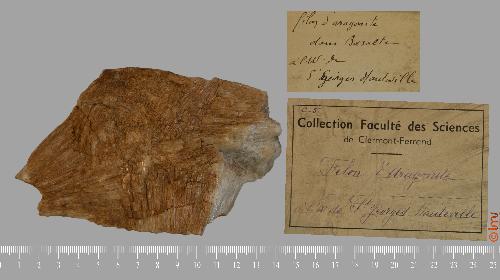 filon d'aragonite
dans Basalte
à l'W. de
St Georges Hauteville
C-5
Collection Faculté des Sciences
de Clermont-Ferrand
Filon d'Aragonite
à l'W de St Georges Hauteville
0 1 2 3 4 5 6 7 8 9 10 11 12 13 14 15 16 17 18 19 20 21 22 23 24 25
© lmv